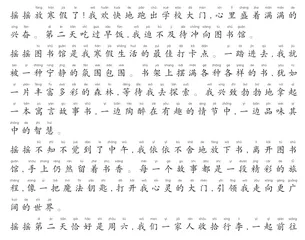 摇摇放寒假了!我欢快地跑出学校大门,心里盛着满满的
兴奋。第二天吃过早饭,我迫不及待冲向图书馆。
摇摇图书馆是我寒假生活的最佳打卡点。一踏进去,我就
被一种宁静的氛围包围。书架上摆满各种各样的书,犹如
一片丰富多彩的森林,等待我去探索。我兴致勃勃地拿起
一本寓言故事书,一边陶醉在有趣的情节中,一边品味其
中的智慧。
摇摇不知不觉到了中午,我依依不舍地放下书,离开图书
馆,手上仍然留着书香。每一个故事都是一段精彩的旅
程,像一把魔法钥匙,打开我心灵的大门,引领我走向更广
阔的世界。
摇摇第二天恰好是周六,我们一家人收拾行李,一起前往